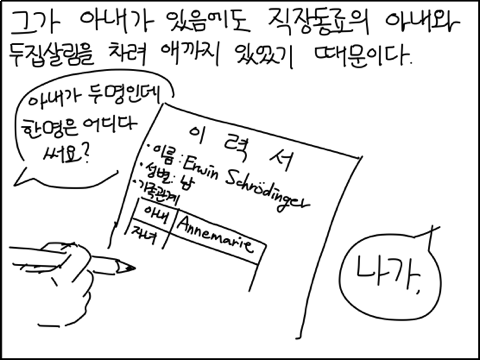 그가 아내가 있음에도 직장동료의 아내와
두집살림을 차려 애까지 있었기 때문이다.
아내가 두명인데
한명은 어디다
써요?
이 력 서
·이름: Erwin Schrödinger
·성별: 남
·가족관계
아내 Annemarie
자녀
나가.